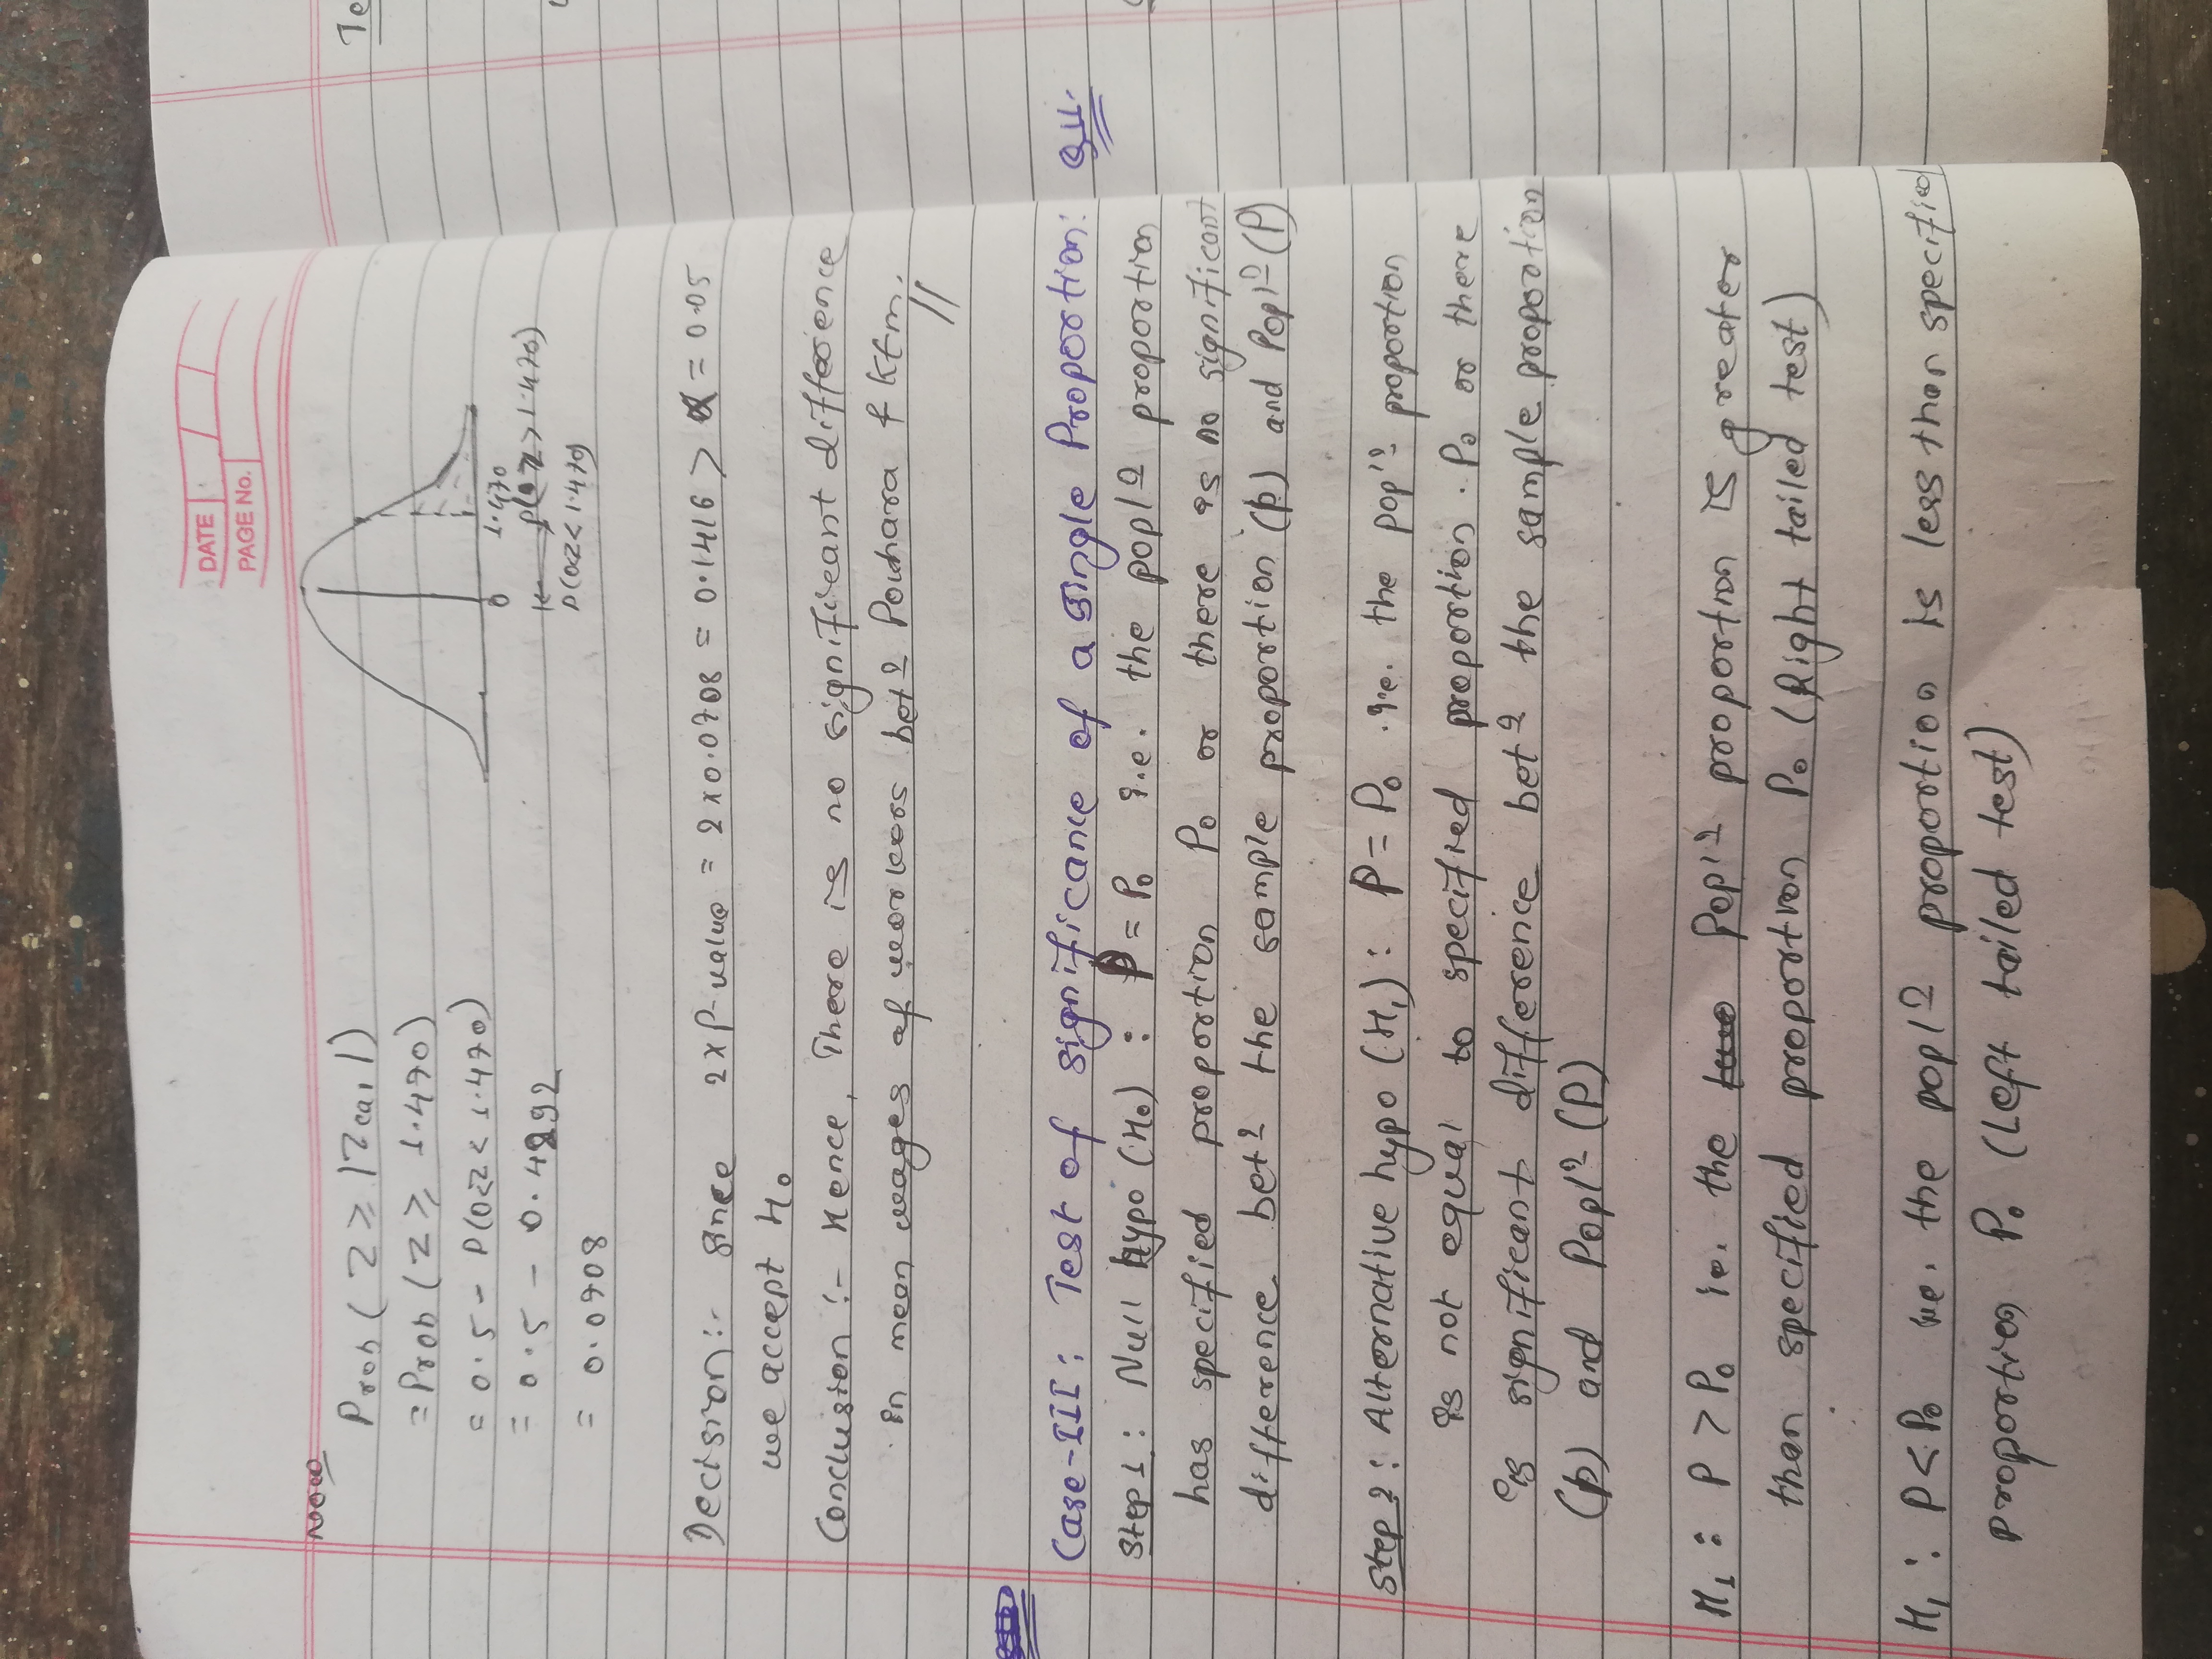 DATE
PAGE No.
Now
Prob ( Z ≥ |Zcal|)
= Prob ( Z ≥ 1.470)
= 0.5 - P(0<Z < 1.470)
= 0.5 - 0.4292
= 0.0708
0 1.470
P(Z > 1.470)
P(0<Z < 1.470)
Decision:- Since 2 x P-value = 2 x 0.0708 = 0.1416 > α = 0.05
we accept H₀
Conclusion :- Hence, There is no significant difference
in mean wages of workers betⁿ Pokhara & Ktm.
Case-III: Test of significance of a single Proportion:
Step 1 : Null hypo (H₀) : P = P₀ i.e. the poplⁿ proportion
has specified proportion P₀ or there is no significant
difference betⁿ the sample proportion (p) and Poplⁿ (P)
Step 2 : Alternative hypo (H₁) : P = P₀ i.e. the popⁿ proportion
is not equal to specified proportion P₀ or there
is significant difference betⁿ the sample proportion
(p) and Poplⁿ (P)
H₁ : P > P₀ ie. the Poplⁿ proportion is greater
than specified proportion P₀ (Right tailed test)
H₁ : P < P₀ i.e. the poplⁿ proportion is less than specified
proportion P₀ (Left tailed test)
Te